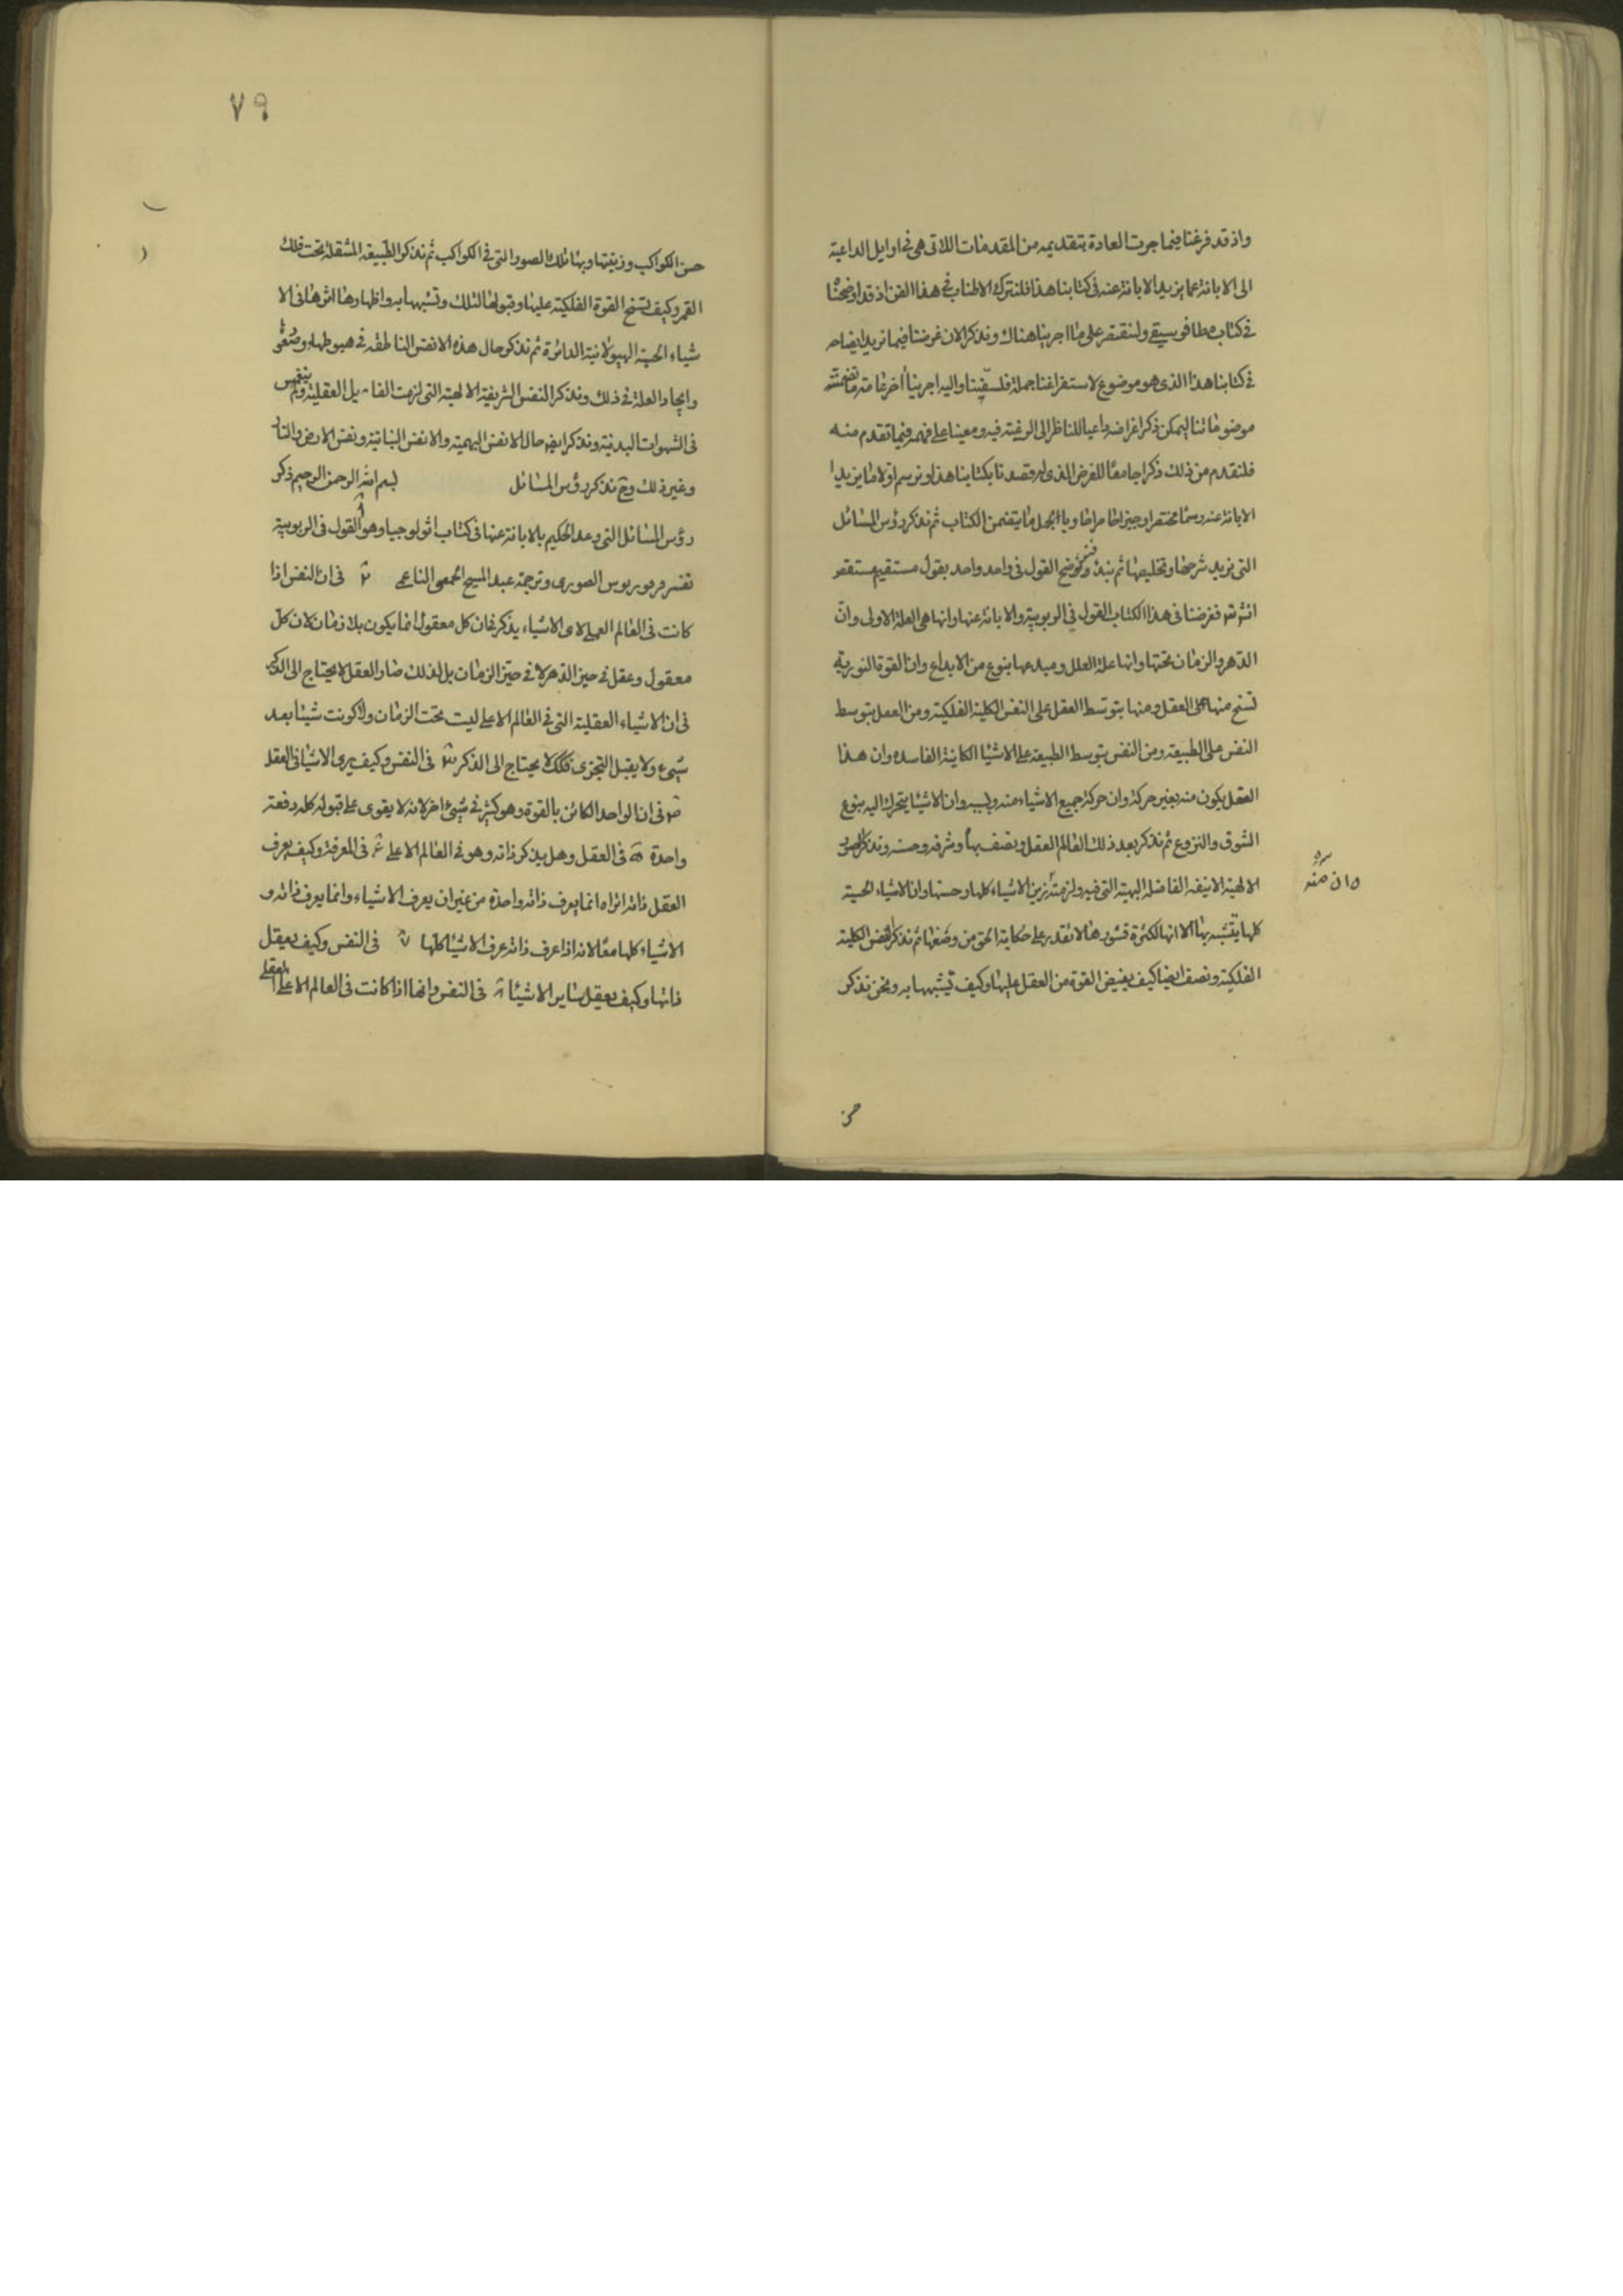 واذ قد فرغنا فيما جرت العادة بتقديمه من المقدمات اللاتى هى فى اوايل الداعية
الى الابانة عما يريد الابانة عنه فى كتابنا هذا فلنترك الاطناب فى هذا الفن اذ قد اوضحنا
فى كتاب مطافوسيقى ولنقتصر على ما اجرينا هناك ونذكر الان غرضنا فيما نريد ايضاحه
فى كتابنا هذا الذى هو موضوع لاستفراغنا جملة فلسفتنا واليه اجرينا اخر غاية ما تضمنته
موضوعاتنا ليمكن ذكر اغراضه داعيا للناظر الى الرغبة فيه ومعينا على فهمه فيما تقدم منه
فلنقدم من ذلك ذكرا جامعا للغرض الذى له قصدنا بكتابنا هذا ونرسم اولا ما يريد
الابانة عنه رسما مختصرا وجيزا حاويا لجمل ما يتضمن الكتاب ثم نذكر رؤس المسائل
التى نريد شرحها وتخليصها ثم نبدا ونوضح القول فى واحد واحد بقول مستقيم مستقصر
فغرضنا فى هذا الكتاب القول فى الربوبية والابانة عنها وانها هى العلة الاولى وان
الدهر والزمان تحتها وانها علة العلل ومبدعها بنوع من الابداع وان القوة النورية
تسنح منها على العقل ومنها بتوسط العقل على النفس الكلية الفلكية ومن العقل بتوسط
النفس على الطبيعة ومن النفس بتوسط الطبيعة على الاشيا الكاينة الفاسده وان هذا
العقل يكون منه بغير حركة وان حركة جميع الاشياء منه وبسببه وان الاشيا يتحرك اليه بنوع
الشوق والنزوع ثم نذكر بعد ذلك العالم العقل ونصف بهاه وشرفه وحسنه ونذكر الصور
الالهية الانيقة الفاضلة البهية التى فيه وان منه زين الاشياء كلها وحسنها وان الاشياء الحسية
وان منه
كلها يتشبه بها الا انها لكثرة قشورها لا تقدر على حكاية الحق من وصفها ثم نذكر النفس الكلية
الفلكية ونصف ايضا كيف يفيض القوة من العقل عليها وكيف تشبهها به ونحن نذكر
حسن
٧٩
حسن الكواكب وزينتها وبهاء تلك الصور التى فى الكواكب ثم نذكر الطبيعة المنتقلة تحت فلك
القمر وكيف تسنح القوة الفلكية عليها وقبولها لتلك وتشبهها به واظهارها اثرها فى الا
شياء الحسية الهيولانية الداثرة ثم نذكر حال هذه الانفس الناطقة فى هبوطها وصعودها
وايجاد العلة فى ذلك ونذكر النفس الشريفة الالهية التى لزمت الفضايل العقلية ولم ينغمس
فى الشهوات البدنية ونذكر ايضا حال الانفس البهيمية والانفس النباتية ونفس الارض والنار
وغير ذلك وح نذكر رؤس المسائل بسم الله الرحمن الرحيم ذكر
رؤس المسائل التى وعد الحكيم بالابانة عنها فى كتاب اثولوجيا وهو القول فى الربوبية
تفسر فرفوريوس الصورى وترجمة عبد المسيح الحمصى الناعمى فى ان النفس اذا
كانت فى العالم العقلى لاى الاشياء يذكر ان كل معقول انما يكون بلا زمان لان كل
معقول وعقل فى حيز الدهر لا فى حيز الزمان بل لذلك صار العقل لا يحتاج الى الذكر
فى ان الاشياء العقلية التى فى العالم الاعلى ليست تحت الزمان ولا كونت شيئا بعد
شىء ولا يقبل التجزى فلذلك لا يحتاج الى الذكر فى النفس وكيف يرى الاشيا فى العقل
فى ان الواحد الكائن بالقوة وهو كثير فى شىء اخر لانه لا يقوى على قبوله كله دفعة
واحدة فى العقل وهل يذكر ذاته وهو فى العالم الاعلى فى المعرفة وكيف يعرف
العقل ذاته اتراه انما يعرف ذاته واحدة من غير ان يعرف الاشياء وانما يعرف ذاته و
الاشياء كلها معا لانه اذا عرف ذاته عرف الاشيا كلها فى النفس وكيف يعقل
ذاتها وكيف يعقل ساير الاشيا فى النفس وانها اذا كانت فى العالم الاعلى العقلى